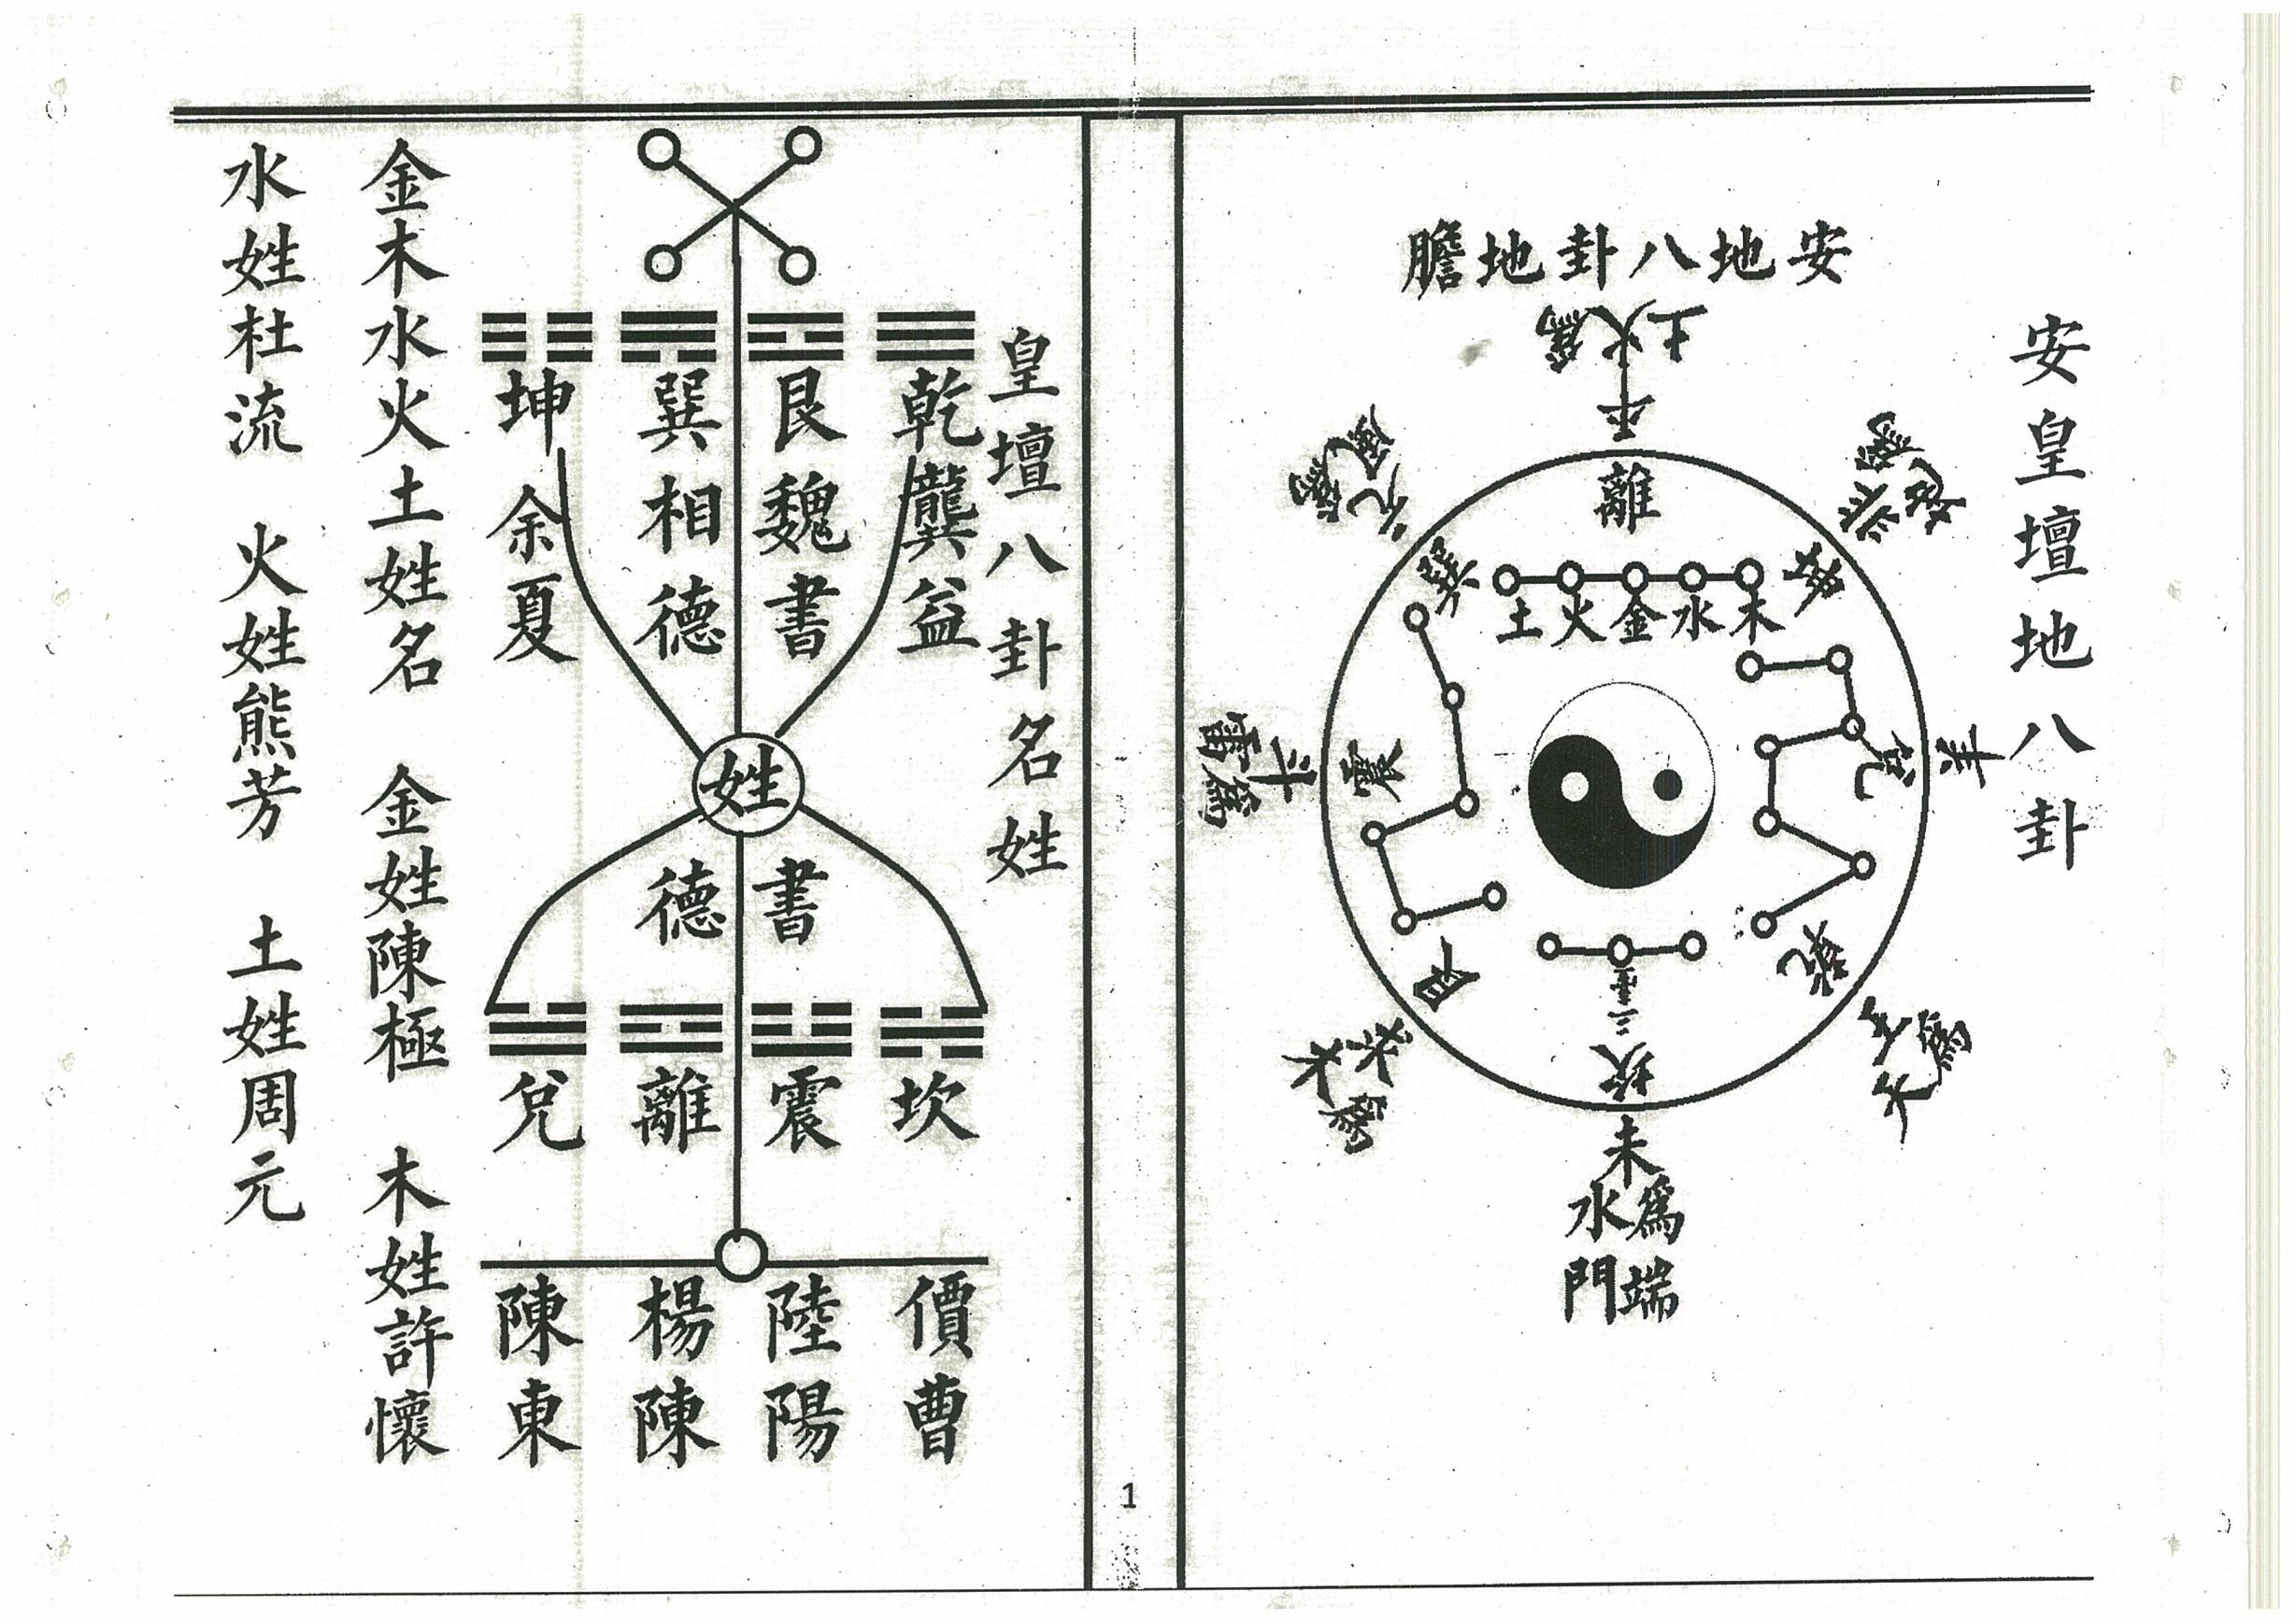 安皇壇地八卦
安地八卦地膽
土火為
午
離
巽
坤
土火金水木
震
兌
羊
斗
雷為
艮
乾
三臺
坎
未
水為
門端
皇壇八卦名姓
乾龔益
艮魏書
巽相德
坤余夏
姓
書
德
坎
震
離
兌
價曹
陸陽
楊陳
陳東
金木水火土姓名 金姓陳極 木姓許懷
水姓杜流 火姓熊芳 土姓周元
1